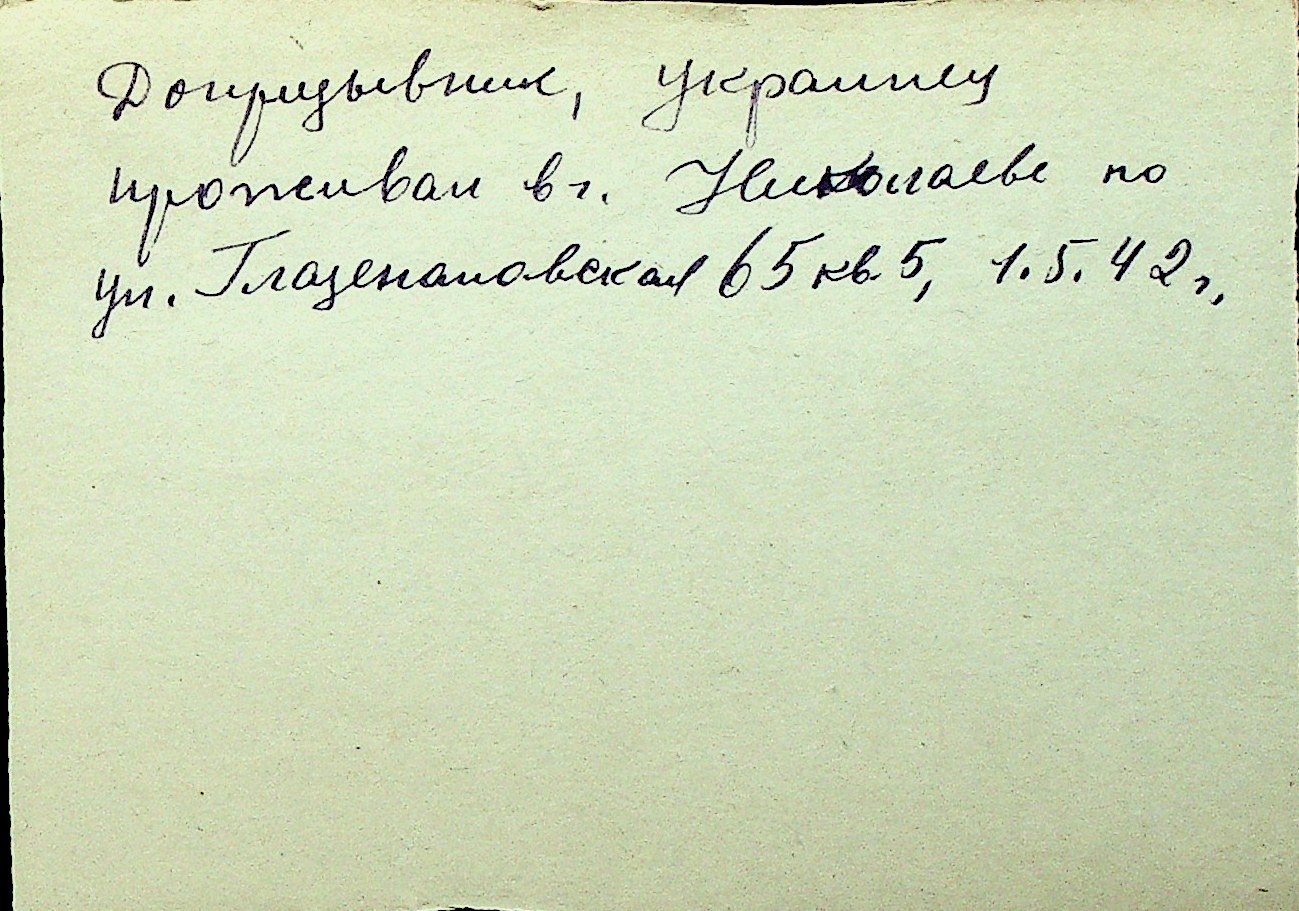 Допризывник, украинец
проживал в г. Николаеве по
ул. Глазенаповская 65 кв. 5, 1.5.42 г,